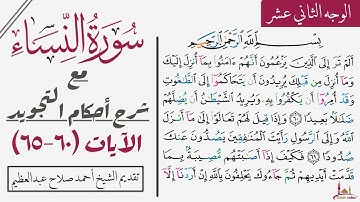 الوجه الثاني عشر
سورة النساء
مع
شرح أحكام التجويد
الآيات (٦٠-٦٥)
تقديم الشيخ أحمد صلاح عبدالعظيم
بِسْمِ اللَّهِ الرَّحْمَٰنِ الرَّحِيمِ
أَلَمْ تَرَ إِلَى الَّذِينَ يَزْعُمُونَ أَنَّهُمْ ءَامَنُوا بِمَا أُنزِلَ إِلَيْكَ
وَمَا أُنزِلَ مِن قَبْلِكَ يُرِيدُونَ أَن يَتَحَاكَمُوا إِلَى الطَّاغُوتِ
وَقَدْ أُمِرُوا أَن يَكْفُرُوا بِهِ وَيُرِيدُ الشَّيْطَانُ أَن يُضِلَّهُمْ
ضَلَالًا بَعِيدًا ۝٦٠ وَإِذَا قِيلَ لَهُمْ تَعَالَوْا إِلَى مَا أَنزَلَ اللَّهُ
وَإِلَى الرَّسُولِ رَأَيْتَ الْمُنَافِقِينَ يَصُدُّونَ عَنكَ
صُدُودًا ۝٦١ فَكَيْفَ إِذَا أَصَابَتْهُم مُّصِيبَةٌ بِمَا
قَدَّمَتْ أَيْدِيهِمْ ثُمَّ جَاءُوكَ يَحْلِفُونَ بِاللَّهِ إِنْ أَرَدْنَا إِلَّا